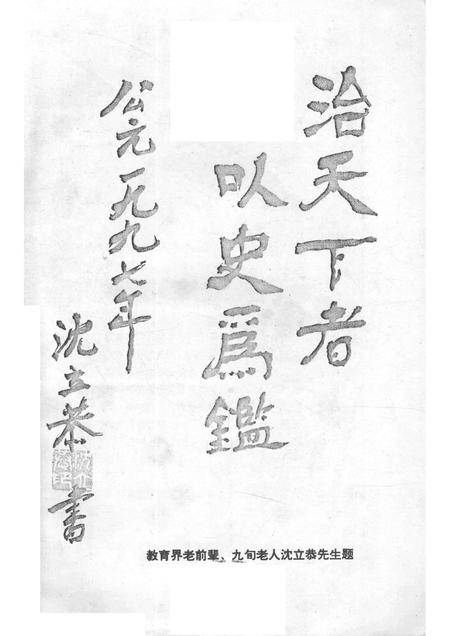 治天下者
以史爲鑑
公元一九九七年
沈立恭書
教育界老前輩、九旬老人沈立恭先生题